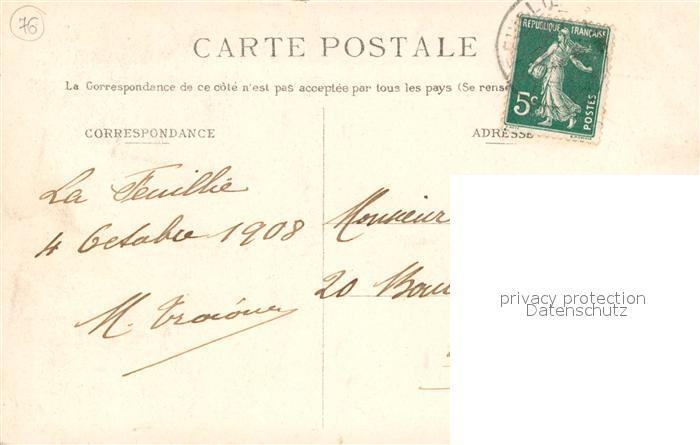 76
CARTE POSTALE
La Correspondance de ce côté n'est pas acceptée par tous les pays (Se rense
REPUBLIQUE FRANÇAISE
5c
POSTES
CORRESPONDANCE
ADRESSE
La Feuillie
4 Octobre 1908
M.
Monsieur
20
privacy protection
Datenschutz